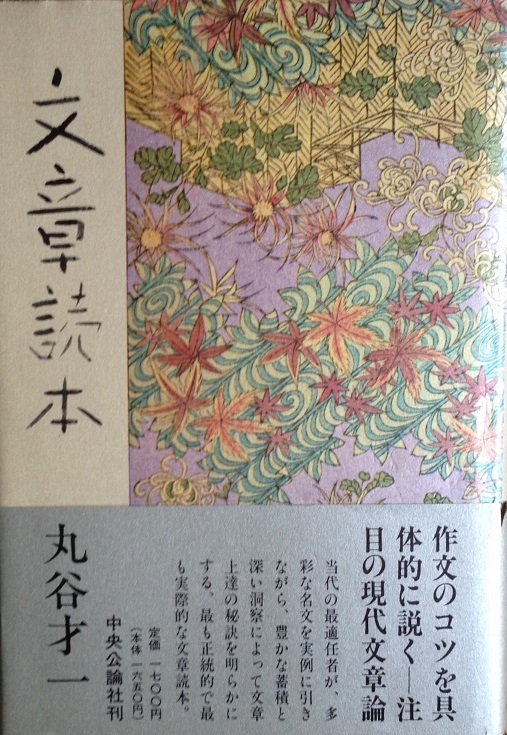 文章読本
作文のコツを具
体的に説く―注
目の現代文章論
当代の最適任者が、多
彩な名文を実例に引き
ながら、豊かな蓄積と
深い洞察によって文章
上達の秘訣を明らかに
する、最も正統的で最
も実際的な文章読本。
定価 一七〇〇円
(本体 一六五〇円)
中央公論社刊
丸谷才一